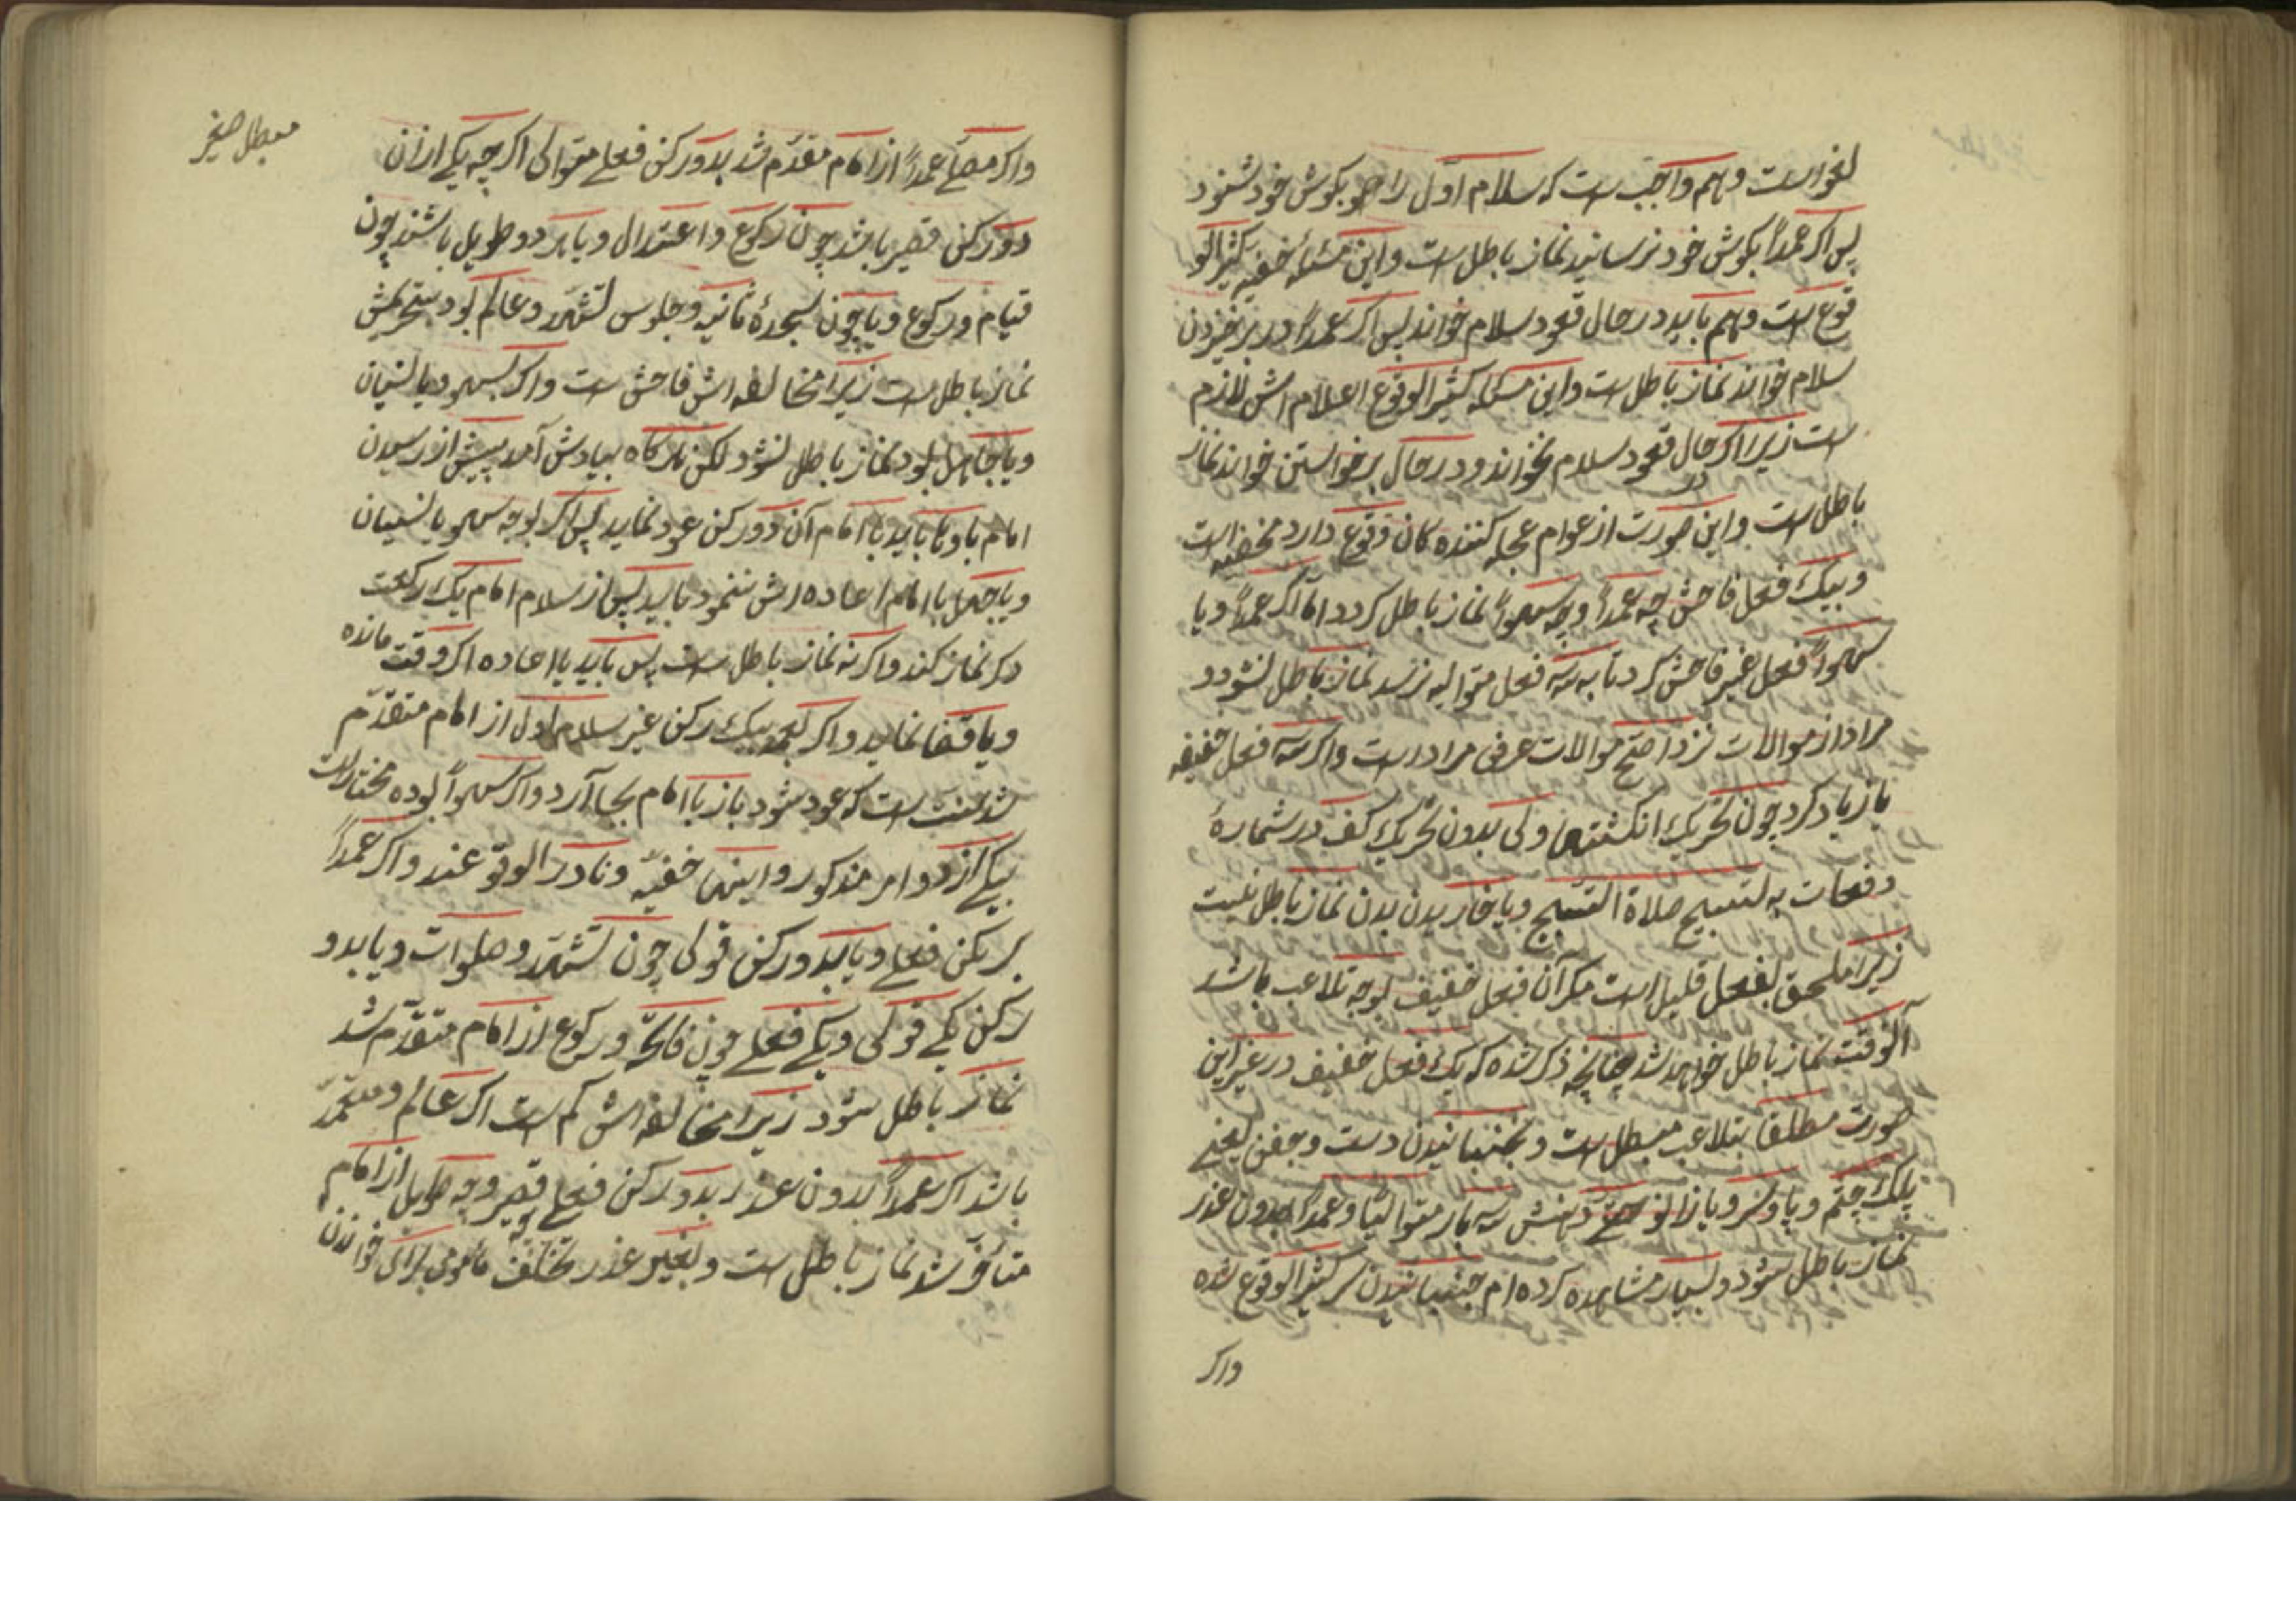 لغو است و هم واجب است که سلام اول را هو بکوش خود شنود
پس اکر عمداً بکوش خود نرسانید نماز باطل است و این مسئله خفیه کثیر الو
قوع است و هم باید در حال قعود سلام خواند پس اکر عمداً در برخیزدن
سلام خواند نماز باطل است و این مسئله کثیر الوقوع اعلام اش لازم
ست زیرا اکر در حال قعود سلام نخواند و در حال برخواستن خواند نماز
باطل است و این صورت از عوام عجله کننده کان وقوع دارد مخفیه است
و بیک فعل فاحش چه عمداً و چه سهواً نماز باطل کردد اما اکر عمداً و یا
سهواً فعل غیر فاحش کرد تا به سه فعل متوالیه نرسد نماز باطل نشود و
مراد از موالات نزد اصح موالات عرفی مراد است و اکر سه فعل خفیفه
یا زیاد کرد چون تحریک انکشتها ولی بدون تحریک کف در شمارهٔ
دفعات به تسبیح صلاة التسبیح و یا خاریدن بدن نماز باطل نیست
زیرا ملحق بفعل قلیل است مکر آن فعل خفیف بوجه تلاعب باشد
آنوقت نماز باطل خواهد شد چنانچه ذکر شده که یک فعل خفیف در غیر این
صورت مطلقا بتلاعب مبطل است و بجنبانیدن دست و جفن یعنی
پلک چشم و پا و سر و یا زانو دهنش سه بار متوالیًا و عمداً بدون عذر
نماز باطل شود و بسیار مشاهده کرده ام جنبانیدن سر کثیر الوقوع شده
واکر
مبطل صغیر
واکر مصلّے عمداً از امام مقدّم شد بدو رکن فعلے متوالی اکر چه یکے از آن
دو رکن قصیر باشد چون رکوع و اعتدال و یا هر دو طویل باشند چون
قیام و رکوع و یا چون سجدهٔ ثانیه و جلوس تشهد و عالم بود بتحریمش
نماز باطل است زیرا مخالفه اش فاحش ست واکر بسهو و یا نسیان
و یا جاهل بود نماز باطل نشود لکن هر کاه بیادش آمد پیش از رسیدن
امام باو باید با امام آن دو رکن عود نماید پس اکر بوجه سهو یا نسیان
و یا جهل با امام اعاده اش ننمود باید پس از سلام امام یک رکعت
دکر نماز کند واکر نه نماز باطل ست پس باید یا اعاده اکر وقت مانده
و یا قضا نماید واکر بعمد بیک رکن غیر سلام اول از امام متقدّم
شد سنت ست که عود شود باز با امام بجا آرد واکر سهواً بوده مختار است
بیکے از دو امر مذکور و اینها خفیّه و نادر الوقوعند واکر عمداً
بر رکن فعلے و یا بدو رکن قولی چون تشهّد و صلوات و یا بدو
رکن یکے قولی و یکے فعلے چون فاتحّه و رکوع از امام متقدّم شد
نماز باطل شود زیرا مخالفه اش کم ست اکر عالم و متعمّد
باشد اکر عمداً بدون عذر بدو رکن فعلے چه قصیر و چه طویل از امام
متأخّر شد نماز باطل است و بغیر عذر تخلّف مأمومی برای خواندن